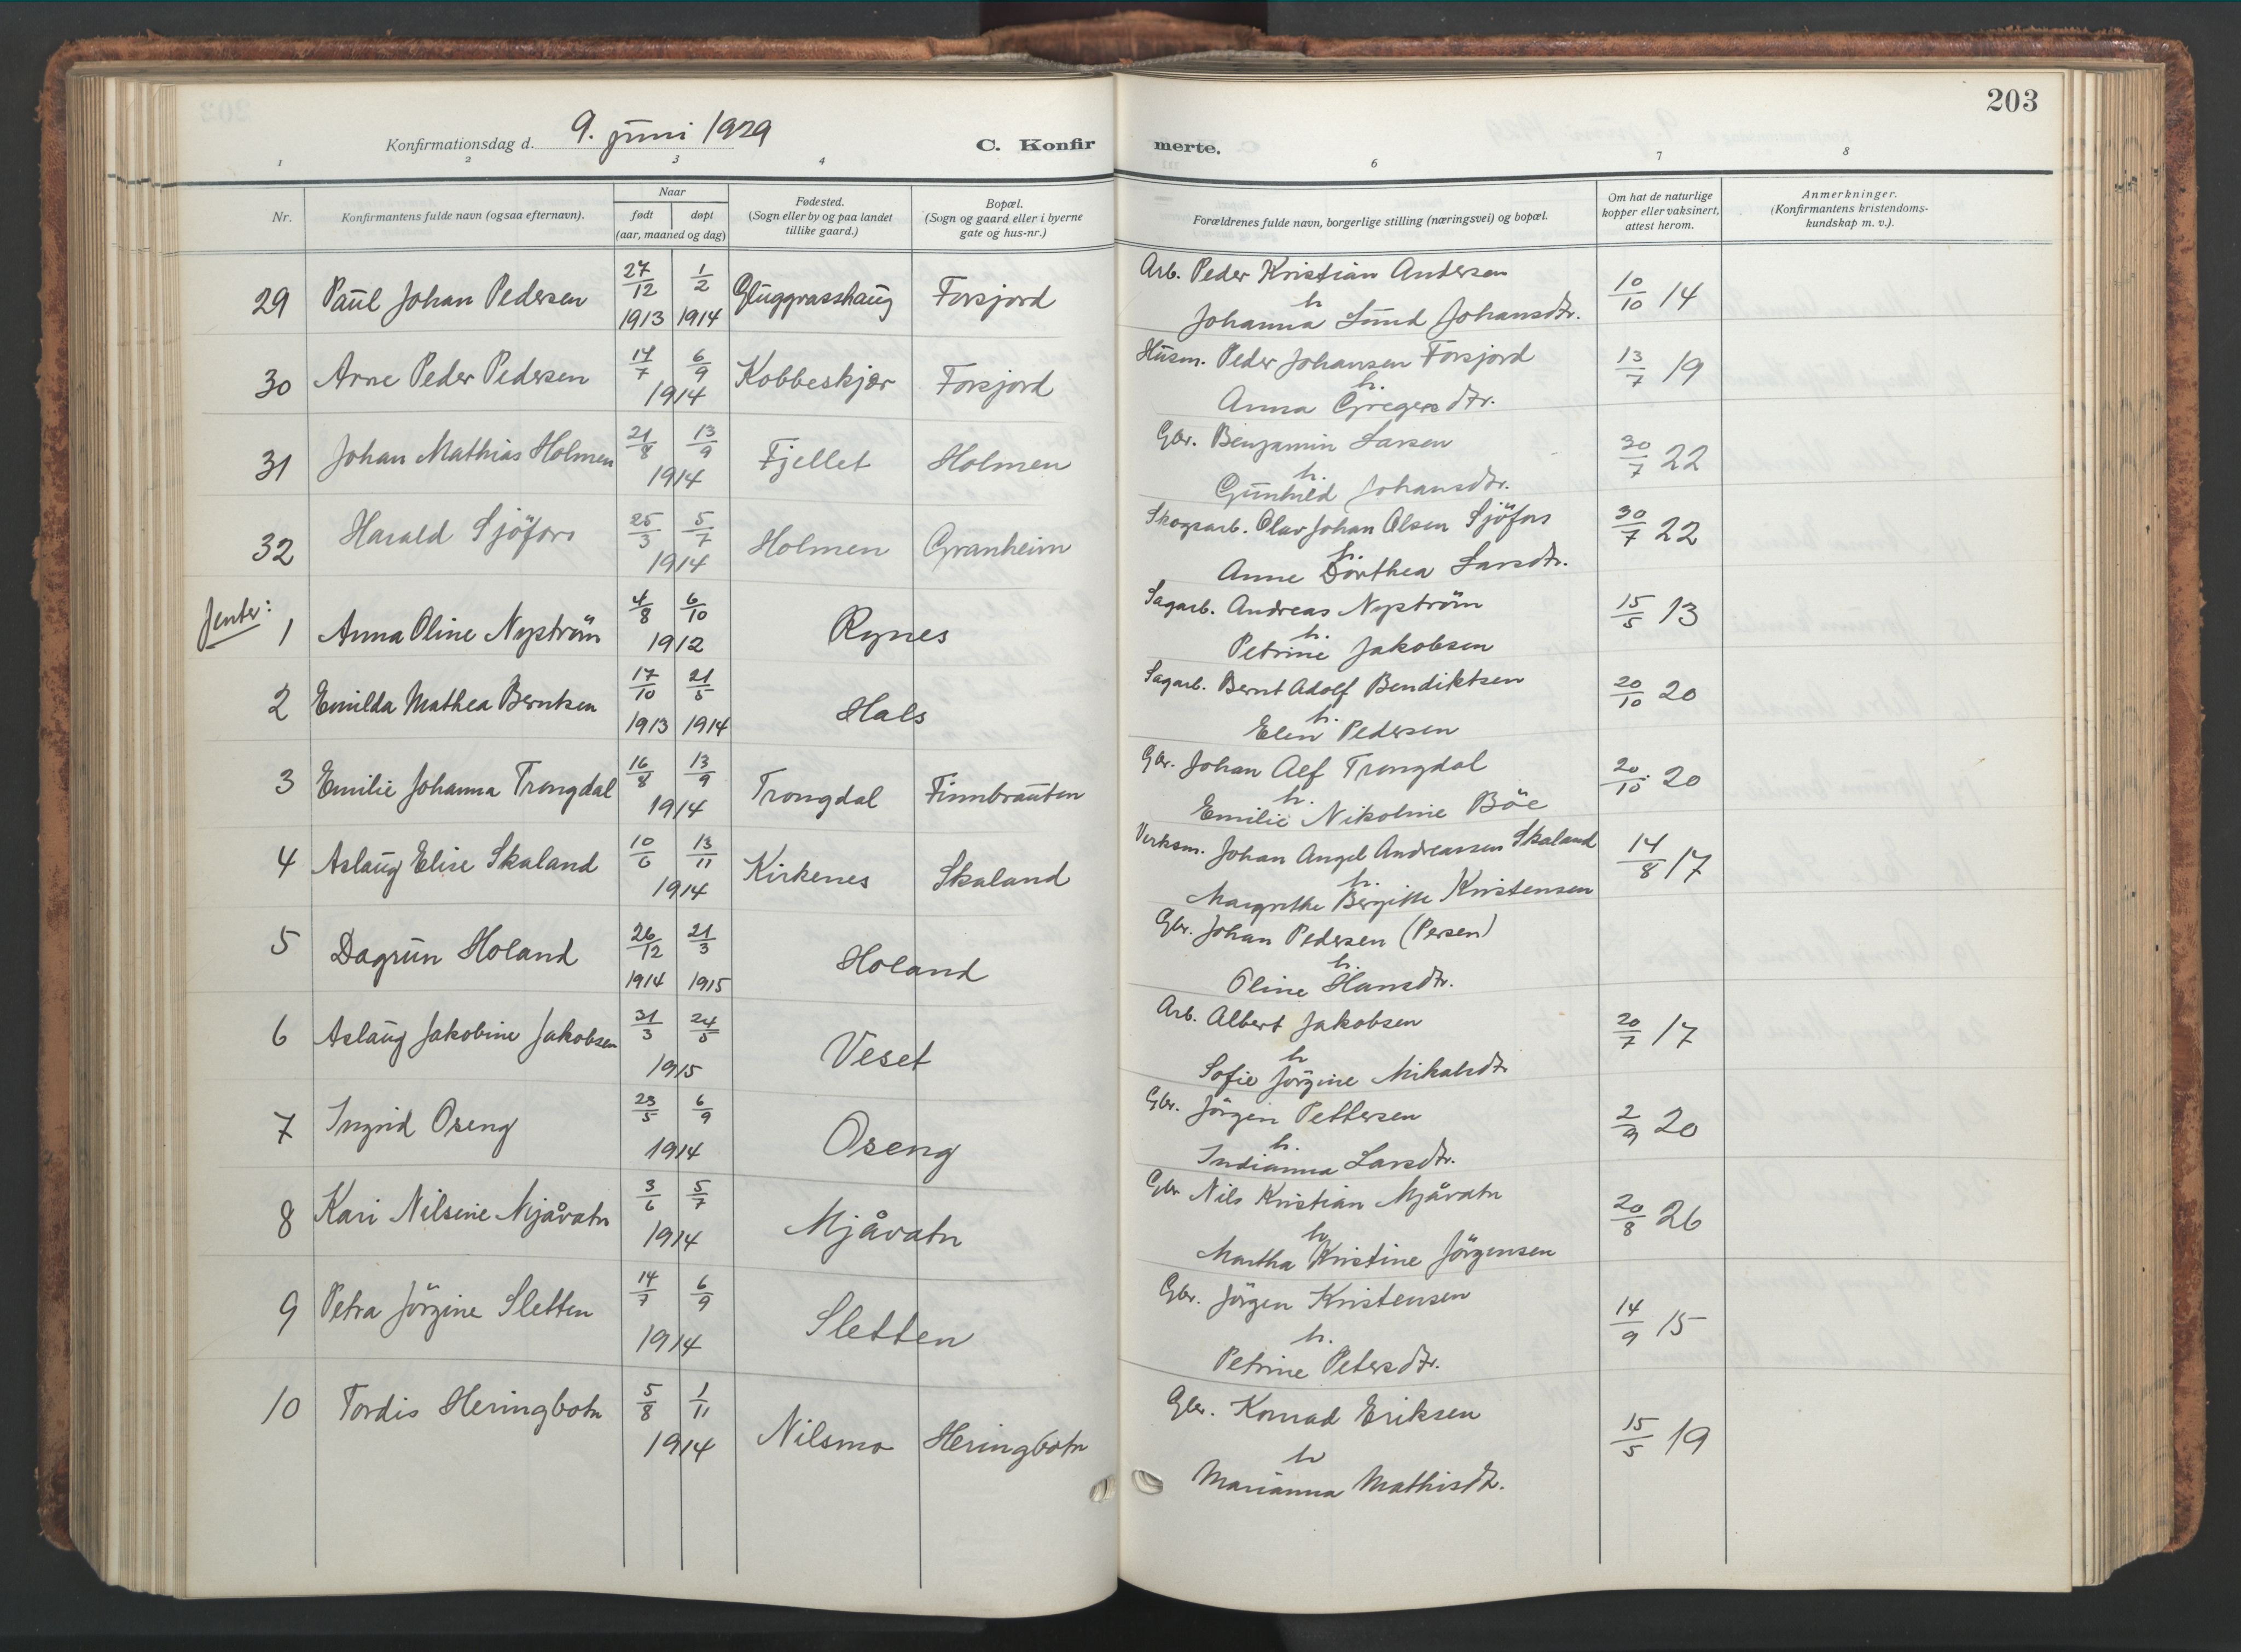 203
Konfirmationsdag d. 9. juni 1929 C. Konfirmerte.
1 2 3 4 6 7 8
Nr. Konfirmantens fulde navn (ogsaa efternavn). Naar født døpt (aar, maaned og dag) Fødested. (Sogn eller by og paa landet tillike gaard.) Bopæl. (Sogn og gaard eller i byerne gate og hus-nr.) Forældrenes fulde navn, borgerlige stilling (næringsvei) og bopæl. Om hat de naturlige kopper eller vaksinert, attest herom. Anmerkninger. (Konfirmantens kristendoms-kundskap m. v.).
29 Paul Johan Pedersen 27/12 1913 1/2 1914 Gluggvasshaug Forsjord Arb. Peder Kristian Andersen
h
Johanna Lund Johansdtr. 10/10 14
30 Arne Peder Pedersen 17/7 6/9 1914 Kobbeskjær Forsjord Husm. Peder Johansen Forsjord
h.
Anna Gregersdtr. 13/7 19
31 Johan Mathias Holmen 21/8 13/9 1914 Fjellet Holmen Gbr. Benjamin Larsen
h.
Gunhild Johansdtr. 30/7 22
32 Harald Sjöfors 25/3 5/7 1914 Holmen Granheim Skogsarb. Olav Johan Olsen Sjöfors
h.
Anne Dorthea Larsdtr. 30/7 22
Jenter:
1 Anna Oline Nyström 4/8 6/10 1912 Rynes Sagarb. Andreas Nyström
h.
Petrine Jakobsen 15/5 13
2 Emilda Mathea Berntsen 17/10 1913 21/5 1914 Hals Sagarb. Bernt Adolf Bendiktsen
h.
Elen Pedersen 20/10 20
3 Emilie Johanna Trongdal 16/8 13/9 1914 Trongdal Finnbrauten Gbr. Johan Alf Trongdal
h.
Emilie Nikoline Böe 20/10 20
4 Aslaug Elise Skaland 10/6 13/11 1914 Kirkenes Skaland Verksm. Johan Angel Andreassen Skaland
h.
Margrethe Bergitte Kristensen 14/8 17
5 Dagrun Holand 26/12 1914 21/3 1915 Holand Gbr. Johan Pedersen (Persen)
h.
Oline Hansdtr.
6 Aslaug Jakobine Jakobsen 31/3 24/5 1915 Veset Arb. Albert Jakobsen
h
Sofie Jörgine Mikalsdtr 20/7 17
7 Ingrid Oseng 23/5 6/9 1914 Oseng Gbr. Jörgen Pettersen
h.
Indianna Larsdtr. 2/9 20
8 Kari Nilsine Mjåvatn 3/6 5/7 1914 Mjåvatn Gbr Nils Kristian Mjåvatn
h
Martha Kristine Jörgensen 20/8 26
9 Petra Jörgine Sletten 14/7 6/9 1914 Sletten Gbr. Jörgen Kristensen
h.
Petrine Petersdtr. 14/9 15
10 Tordis Heringbotn 5/8 1/11 1914 Nilsmo Heringbotn Gbr. Konrad Eriksen
h
Marianna Mathisdtr. 15/5 19